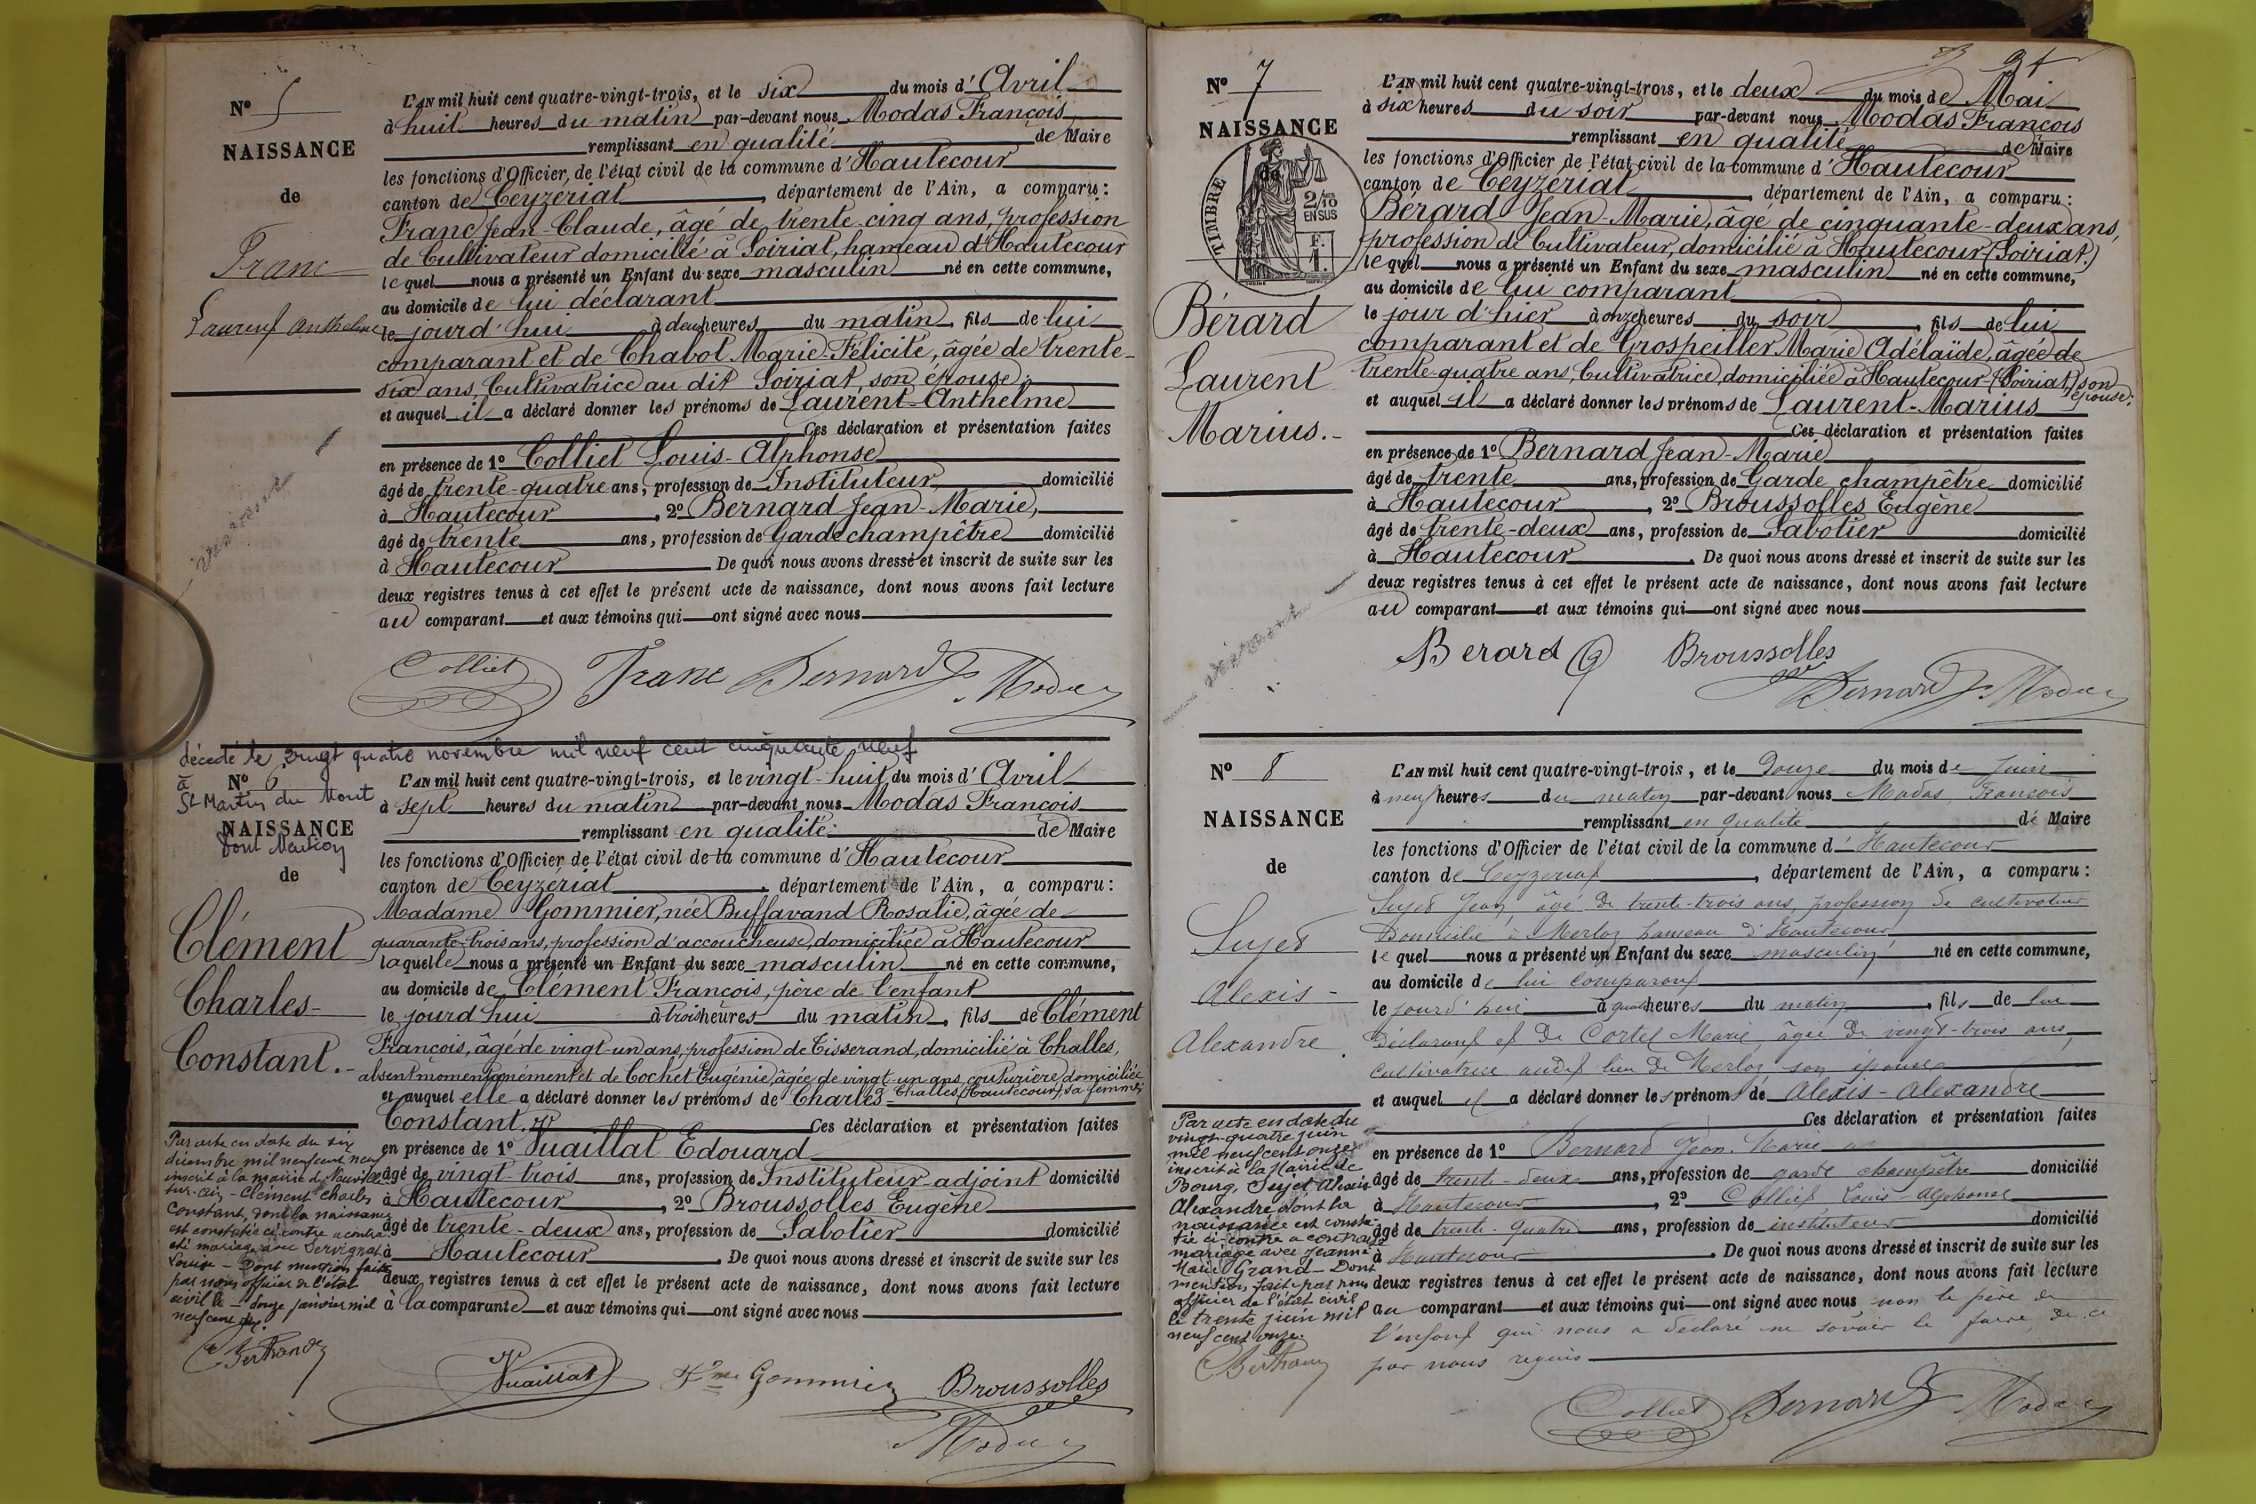 Nº 5
NAISSANCE
de
Franc
Laurent Anthelme
L'AN mil huit cent quatre-vingt-trois, et le six du mois d'Avril
à huit heures du matin par-devant nous Modas François
remplissant en qualité de Maire
les fonctions d'Officier de l'état civil de la commune d'Hautecour
canton de Ceyzériat, département de l'Ain, a comparu:
Franc Jean-Claude, âgé de trente-cinq ans, profession
de Cultivateur domicilié à Soiriat, hameau d'Hautecour
lequel nous a présenté un Enfant du sexe masculin né en cette commune,
au domicile de lui déclarant
le jourd'hui à deux heures du matin, fils de lui
comparant et de Chabot Marie-Félicité, âgée de trente-
six ans, Cultivatrice au dit Soiriat, son épouse;
et auquel il a déclaré donner les prénoms de Laurent-Anthelme
Ces déclaration et présentation faites
en présence de 1º Colliet Louis-Alphonse
âgé de trente-quatre ans, profession de Instituteur domicilié
à Hautecour, 2º Bernard Jean-Marie,
âgé de trente ans, profession de Garde champêtre domicilié
à Hautecour. De quoi nous avons dressé et inscrit de suite sur les
deux registres tenus à cet effet le présent acte de naissance, dont nous avons fait lecture
au comparant et aux témoins qui ont signé avec nous
Colliet Franc Bernard J. Modas
décédé le vingt quatre novembre mil neuf cent cinquante neuf
à
St Martin du Mont
Dont Mention
Nº 6
NAISSANCE
de
Clément
Charles-
Constant.-
L'AN mil huit cent quatre-vingt-trois, et le vingt-huit du mois d'Avril
à sept heures du matin par-devant nous Modas François
remplissant en qualité de Maire
les fonctions d'Officier de l'état civil de la commune d'Hautecour
canton de Ceyzériat, département de l'Ain, a comparu:
Madame Gommier, née Buffavand Rosalie, âgée de
quarante-trois ans, profession d'accoucheuse, domiciliée à Hautecour
laquelle nous a présenté un Enfant du sexe masculin né en cette commune,
au domicile de Clément François, père de l'enfant
le jourd'hui à trois heures du matin, fils de Clément
François, âgé de vingt-un ans, profession de Tisserand, domicilié à Challes,
absent momentanément et de Cochet Eugénie, âgée de vingt-un ans, couturière, domiciliée
Challes (Hautecour), sa femme;
et auquel elle a déclaré donner les prénoms de Charles-
Constant. Ces déclaration et présentation faites
en présence de 1º Vuaillat Edouard
âgé de vingt-trois ans, profession de Instituteur-adjoint domicilié
à Hautecour, 2º Broussolles Eugène
âgé de trente-deux ans, profession de Sabotier domicilié
à Hautecour. De quoi nous avons dressé et inscrit de suite sur les
deux registres tenus à cet effet le présent acte de naissance, dont nous avons fait lecture
à la comparante et aux témoins qui ont signé avec nous
Par acte en date du six
décembre mil neuf cent neuf
inscrit à la mairie de Neuville
sur-ain - Clément Charles
Constant, dont la naissance
est constatée ci-contre a contrac-
té mariage avec Servignat
Louise - Dont mention faite
par nous officier de l'état
civil le douze janvier mil
neuf cent dix.
Berthand
Vuaillat Fme Gommier Broussolles
Modas
Nº 7
NAISSANCE
de
TIMBRE
2/10
EN SUS
F.
1.
Bérard
Laurent
Marius.-
L'AN mil huit cent quatre-vingt-trois, et le deux du mois de Mai
à six heures du soir par-devant nous Modas François
remplissant en qualité de Maire
les fonctions d'Officier de l'état civil de la commune d'Hautecour
canton de Ceyzériat, département de l'Ain, a comparu:
Bérard Jean-Marie, âgé de cinquante-deux ans,
profession de Cultivateur, domicilié à Hautecour (Soiriat.)
lequel nous a présenté un Enfant du sexe masculin né en cette commune,
au domicile de lui comparant
le jour d'hier à onze heures du soir, fils de lui
comparant et de Grospeiller Marie Adélaïde, âgée de
trente-quatre ans, Cultivatrice, domiciliée à Hautecour-(Soiriat) son
épouse;
et auquel il a déclaré donner les prénoms de Laurent-Marius
Ces déclaration et présentation faites
en présence de 1º Bernard Jean-Marie
âgé de trente ans, profession de Garde champêtre domicilié
à Hautecour, 2º Broussolles Eugène
âgé de trente-deux ans, profession de Sabotier domicilié
à Hautecour. De quoi nous avons dressé et inscrit de suite sur les
deux registres tenus à cet effet le présent acte de naissance, dont nous avons fait lecture
au comparant et aux témoins qui ont signé avec nous
Berard Broussolles
Bernard J. Modas
Nº 8
NAISSANCE
de
Sujet
Alexis-
Alexandre
L'AN mil huit cent quatre-vingt-trois, et le Douze du mois de Juin
à neuf heures du matin par-devant nous Modas François
remplissant en qualité de Maire
les fonctions d'Officier de l'état civil de la commune d'Hautecour
canton de Ceyzériat, département de l'Ain, a comparu:
Sujet Jean, âgé de trente-trois ans, profession de cultivateur
Domicilié à Merloz hameau d'Hautecour
lequel nous a présenté un Enfant du sexe masculin né en cette commune,
au domicile de lui comparant
le jourd'hui à quatre heures du matin, fils de lui
Déclarant et de Cortel Marie, âgée de vingt-trois ans,
cultivatrice audit lieu de Merloz son épouse
et auquel il a déclaré donner les prénoms de Alexis-Alexandre
Ces déclaration et présentation faites
en présence de 1º Bernard Jean-Marie
âgé de trente-deux ans, profession de garde champêtre domicilié
à Hautecour, 2º Colliet Louis-Alphonse
âgé de trente-quatre ans, profession de instituteur domicilié
à Hautecour. De quoi nous avons dressé et inscrit de suite sur les
deux registres tenus à cet effet le présent acte de naissance, dont nous avons fait lecture
au comparant et aux témoins qui ont signé avec nous non le père de
l'enfant qui nous a déclaré ne savoir le faire, de ce
par nous requis
Par acte en date du
vingt-quatre juin
mil neuf cent onze
inscrit à la Mairie de
Bourg, Sujet Alexis
Alexandre dont la
naissance est consta-
tée ci-contre a contracté
mariage avec Jeanne
Marie Grand - Dont
mention faite par nous
officier de l'état civil
le trente juin mil
neuf cent onze.
Berthand
Colliet Bernard J. Modas